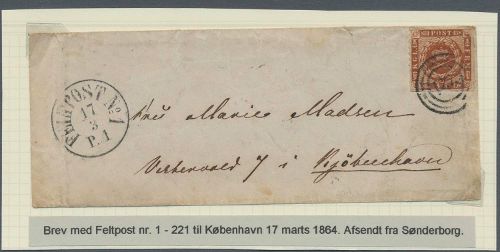 FELDPOST No. 1
17
3
P. 1
KGL POST FRM
Frü Marie Madsen
Vestervold 7 i Kjöbenhavn
Brev med Feltpost nr. 1 - 221 til København 17 marts 1864. Afsendt fra Sønderborg.